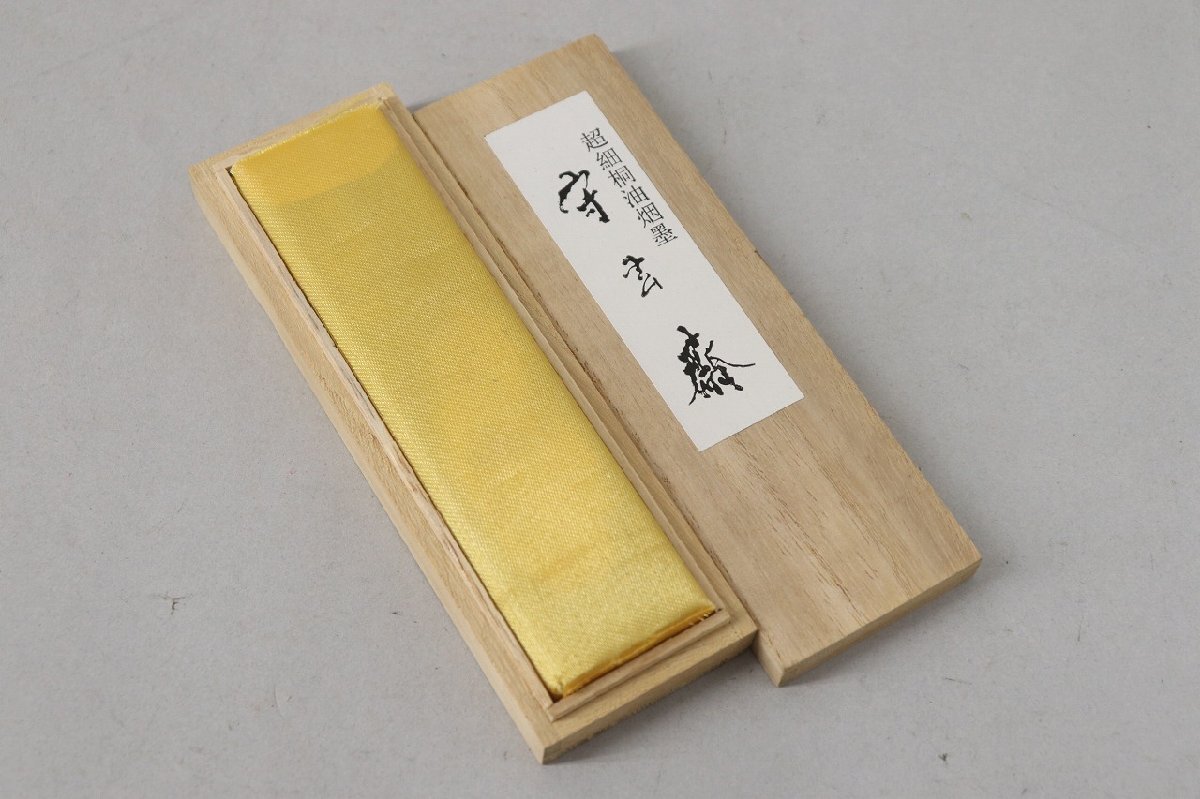 超細桐油烟墨
守玄齋